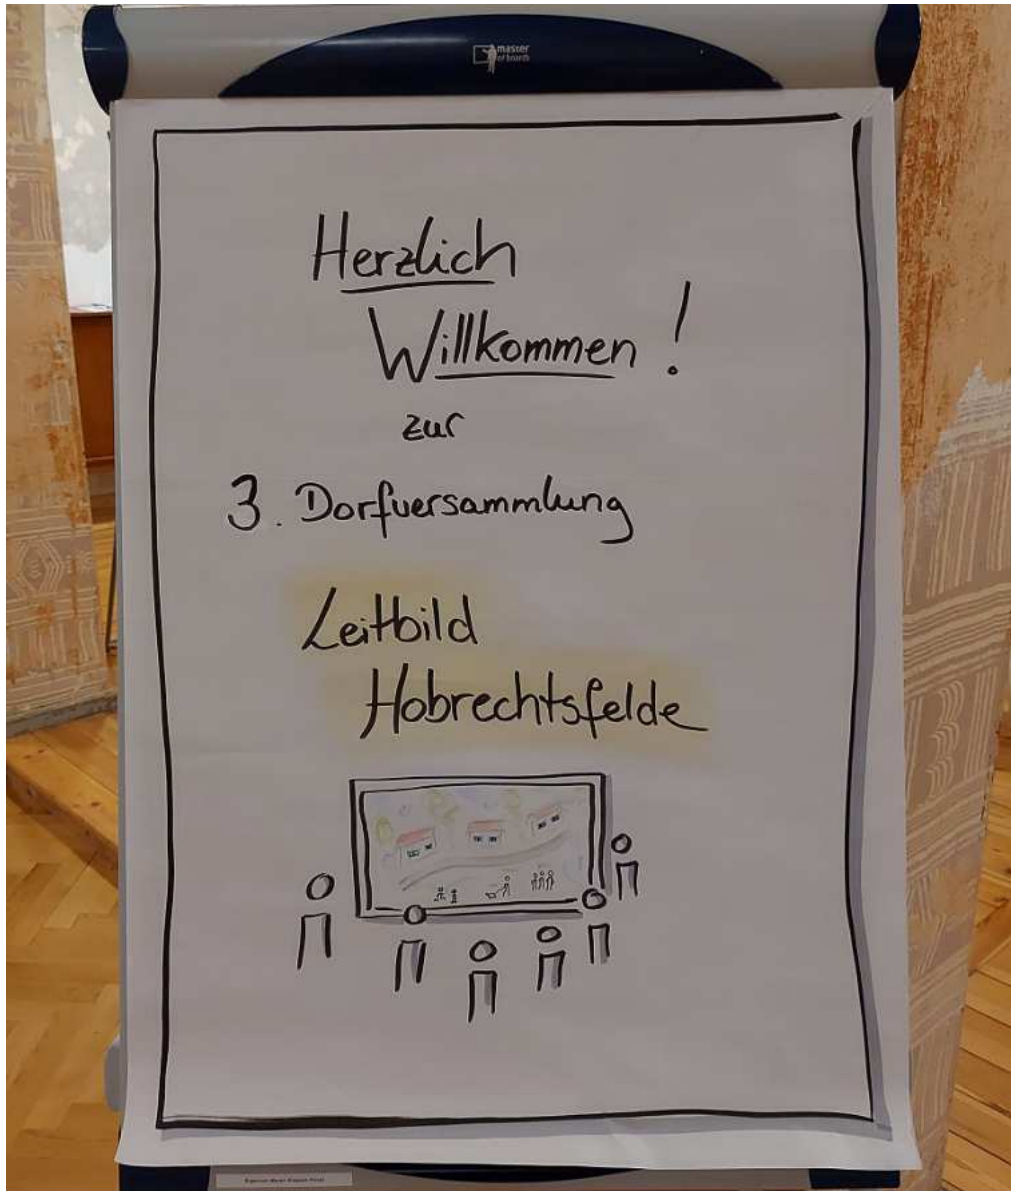 master
of boards
Herzlich
Willkommen !
zur
3. Dorfversammlung
Leitbild
Hobrechtsfelde